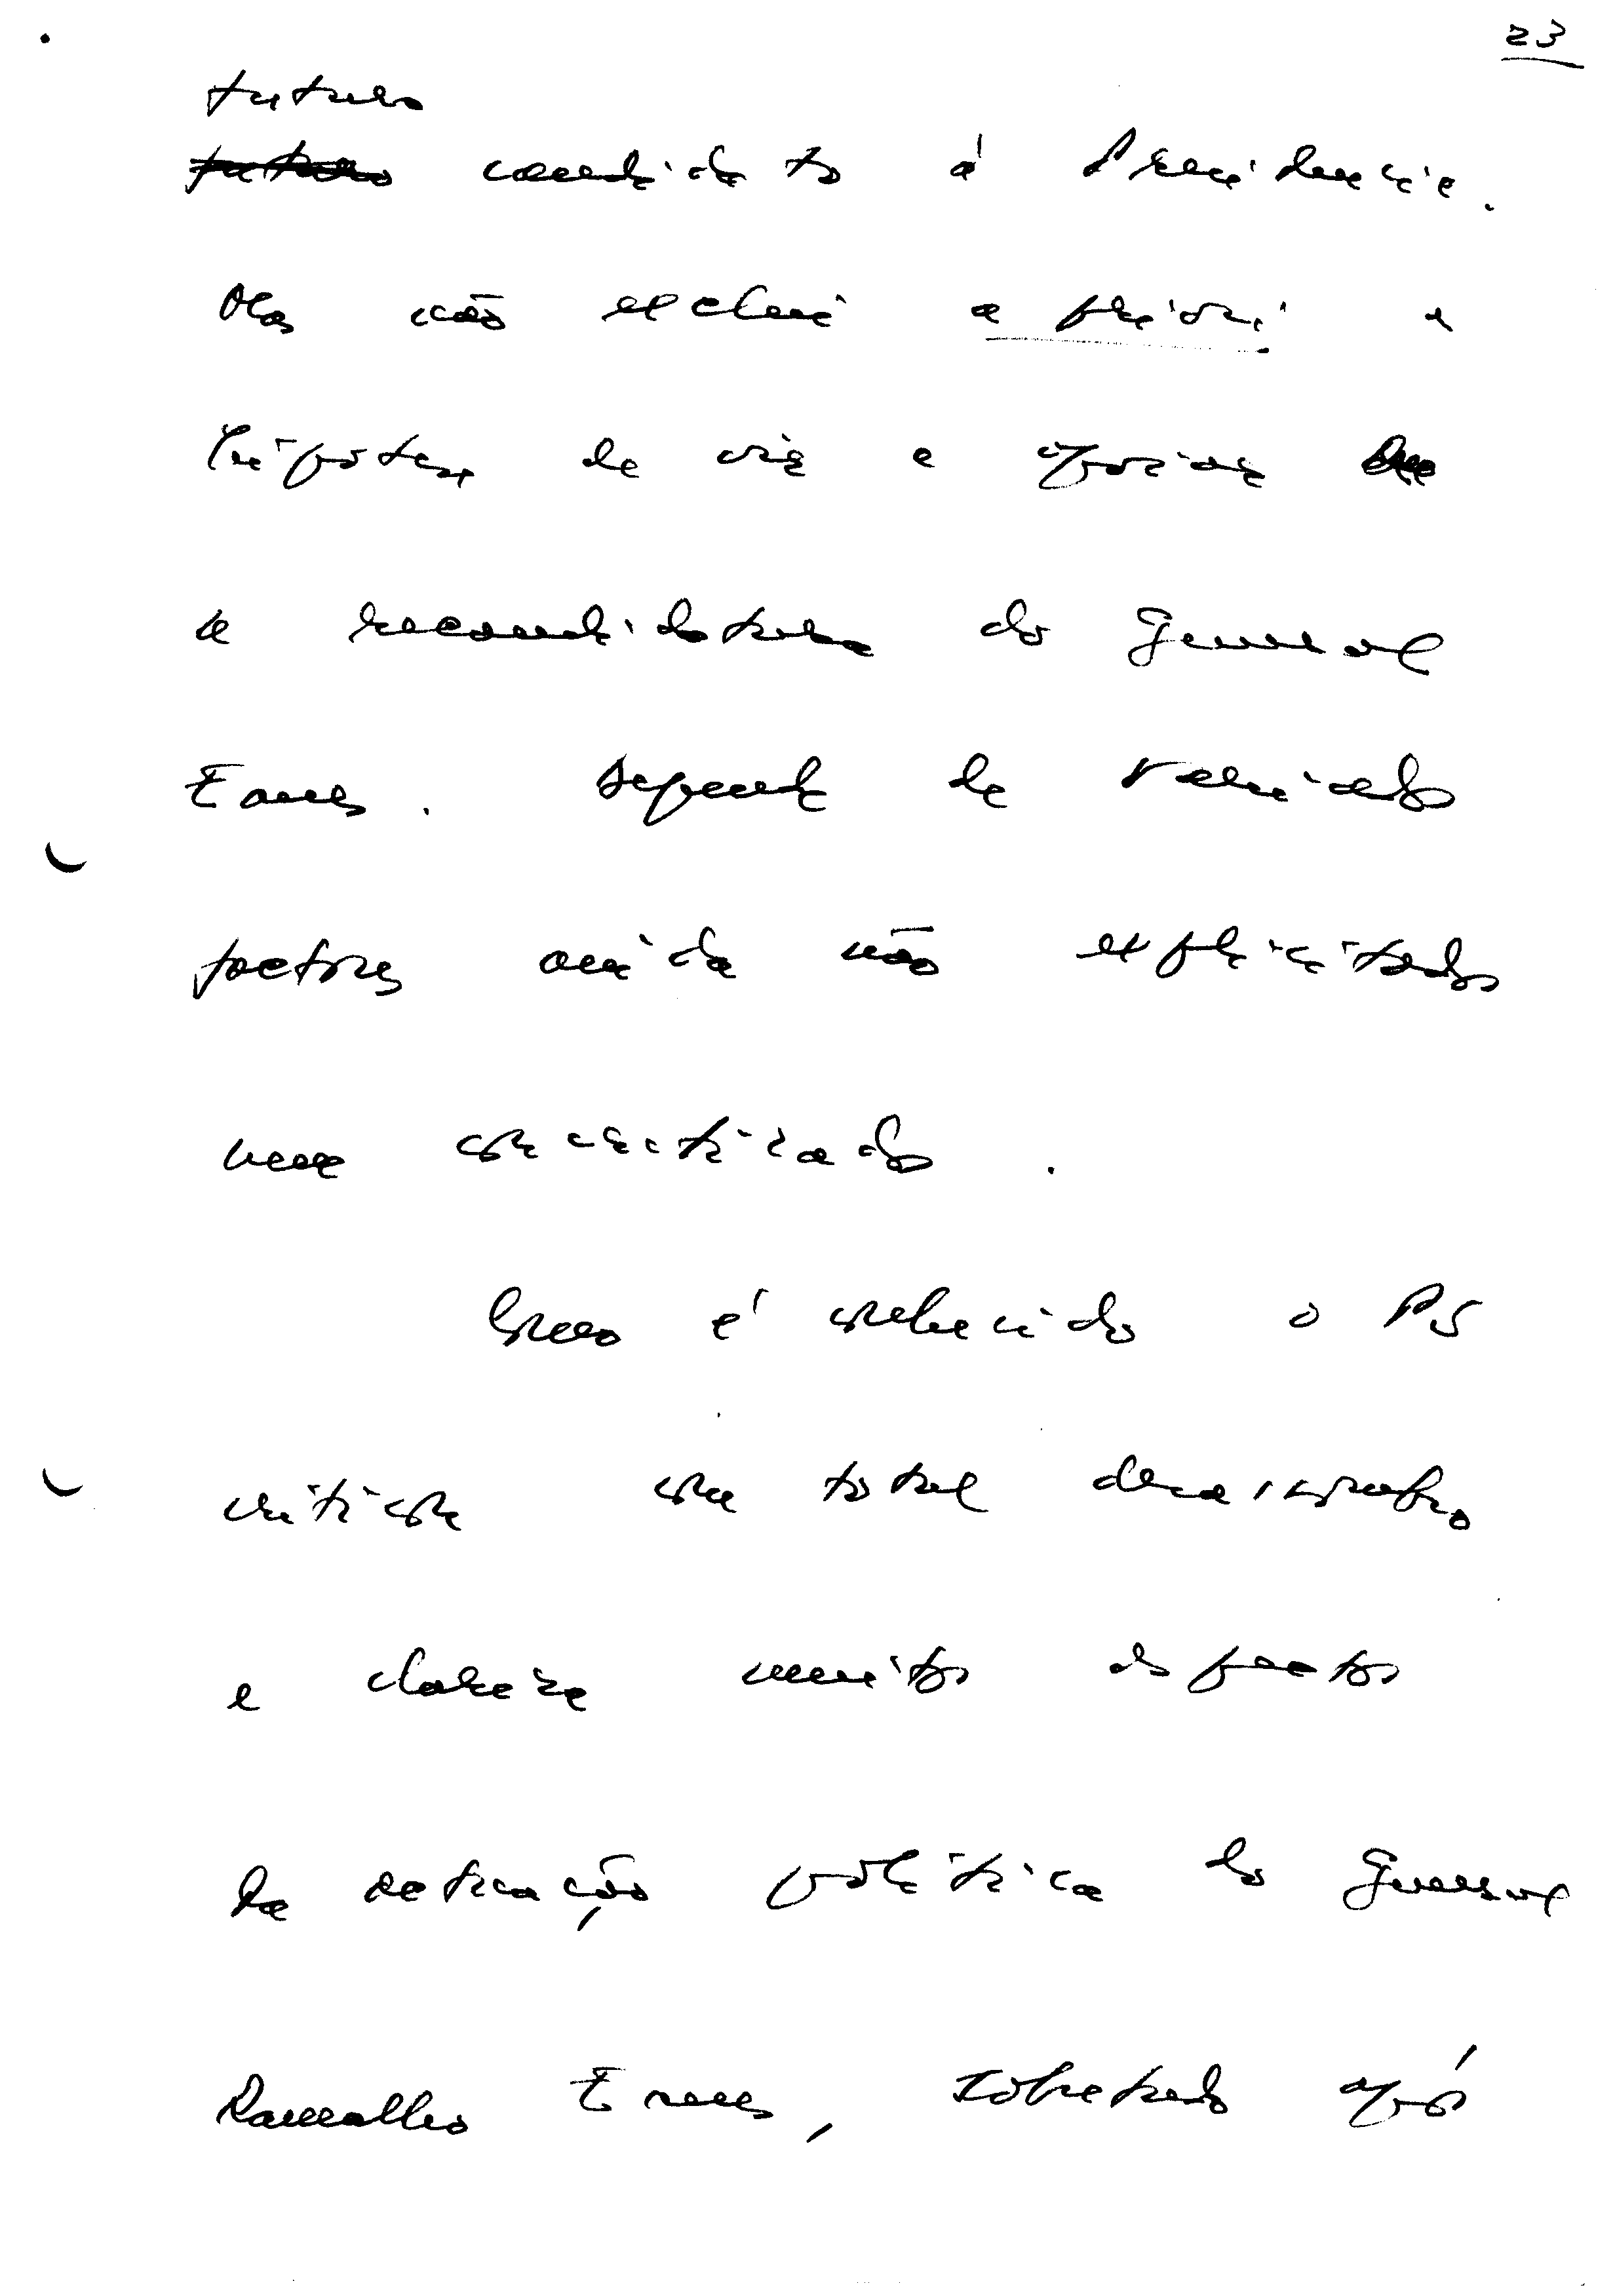 23
futuro
futuro candidato à Presidência.
Mas não exclui a priori a
hipótese de vir a apoiar
a recandidatura do General
Eanes. Depende de variados
factores ainda não explicitados
nem concretizados.
Como é conhecido o PS
criticou com total desassombro
e clareza muitos aspectos
da actuação política do General
Ramalho Eanes, sobretudo após